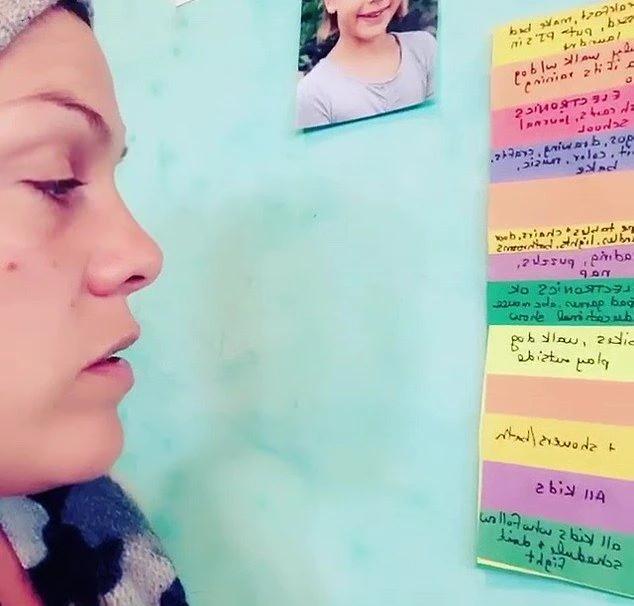 eakfast, make bed
ssed, put PJ's in
laundry
ily walk w/ dog
a if it's raining
o
ELECTRONICS
sh cards, journal
school
egos, drawing, crafts,
it, color, music,
bake
pe tables + chairs, door
ndles, lights, bathrooms
ading, puzzles,
nap
LECTRONICS OK
pad games, abc mouse
ducational show
bikes, walk dog
play outside
+ showers/bath
All kids
all kids who follow
schedule & don't
fight